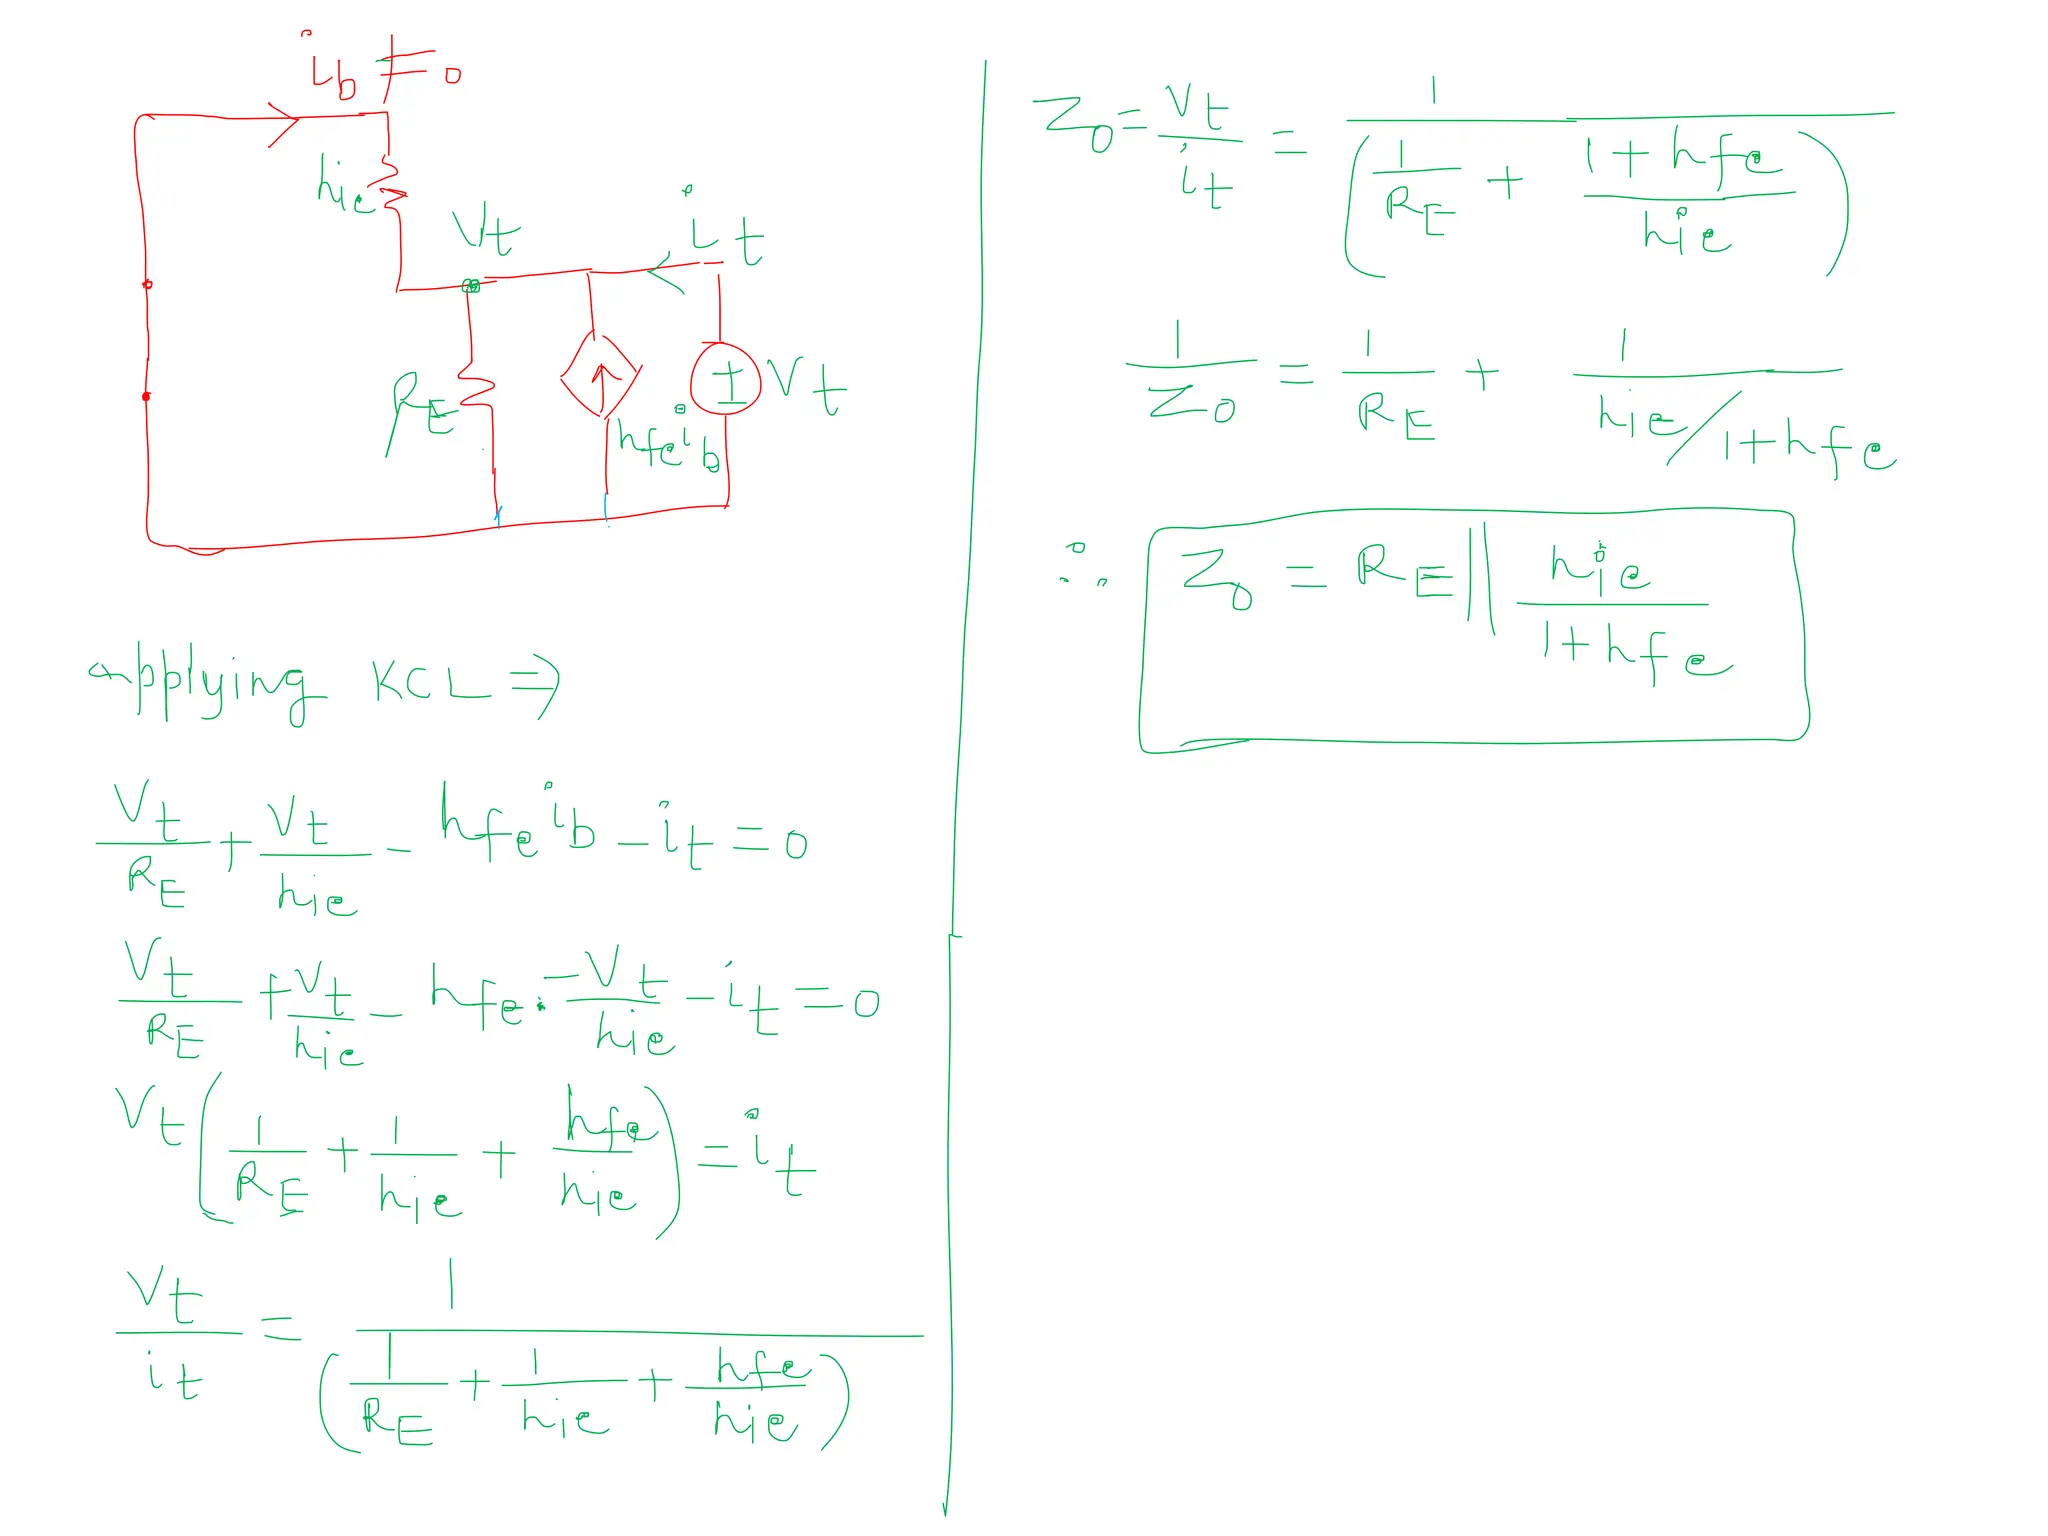 i_b ≠ 0
h_ie
V_t
i_t
R_E
h_fe i_b
± V_t
applying KCL ⇒
V_t/R_E + V_t/h_ie - h_fe i_b - i_t = 0
V_t/R_E + V_t/h_ie - h_fe · -V_t/h_ie - i_t = 0
V_t (1/R_E + 1/h_ie + h_fe/h_ie) = i_t
V_t/i_t = 1/(1/R_E + 1/h_ie + h_fe/h_ie)
Z_o = V_t/i_t = 1/(1/R_E + (1 + h_fe)/h_ie)
1/Z_o = 1/R_E + 1/(h_ie/1+h_fe)
∴ Z_o = R_E || h_ie/(1+h_fe)